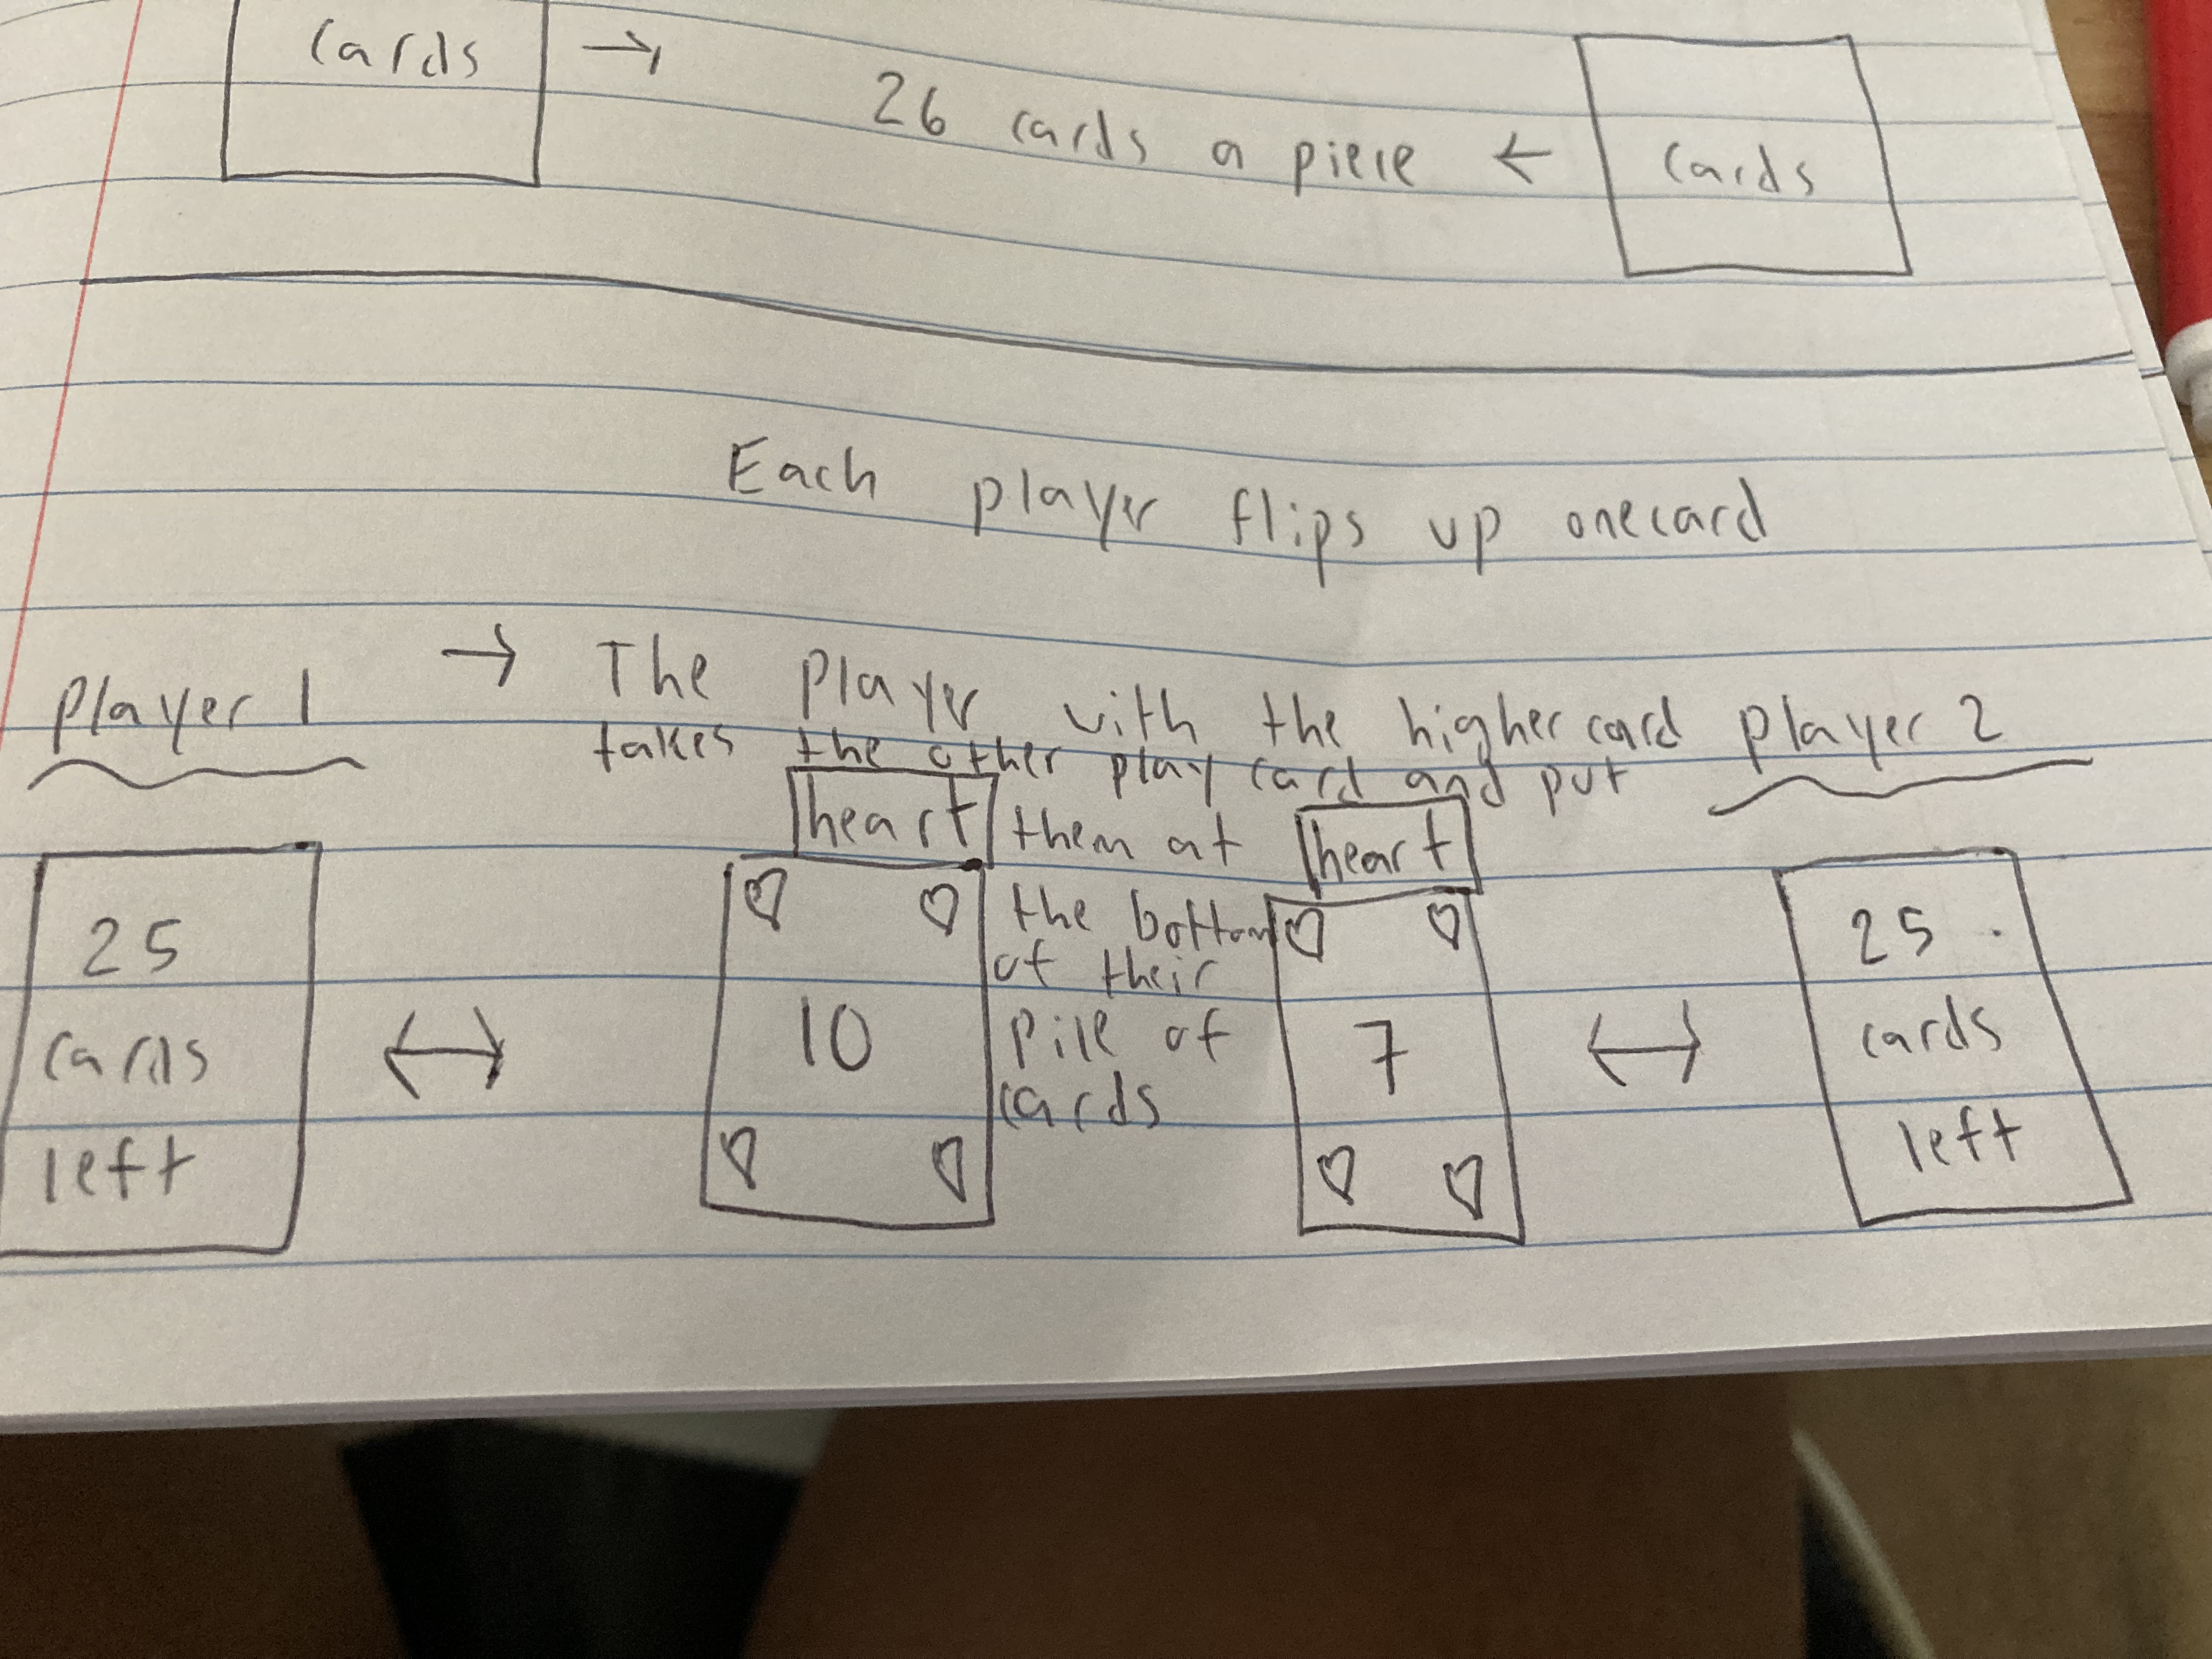 cards → 26 cards a piece ← cards
Each player flips up onecard
player 1 → The player with the higher card player 2
takes the other play card and put
heart them at heart
the bottom
of their
pile of
cards
25
cards
left
10
7
25
cards
left